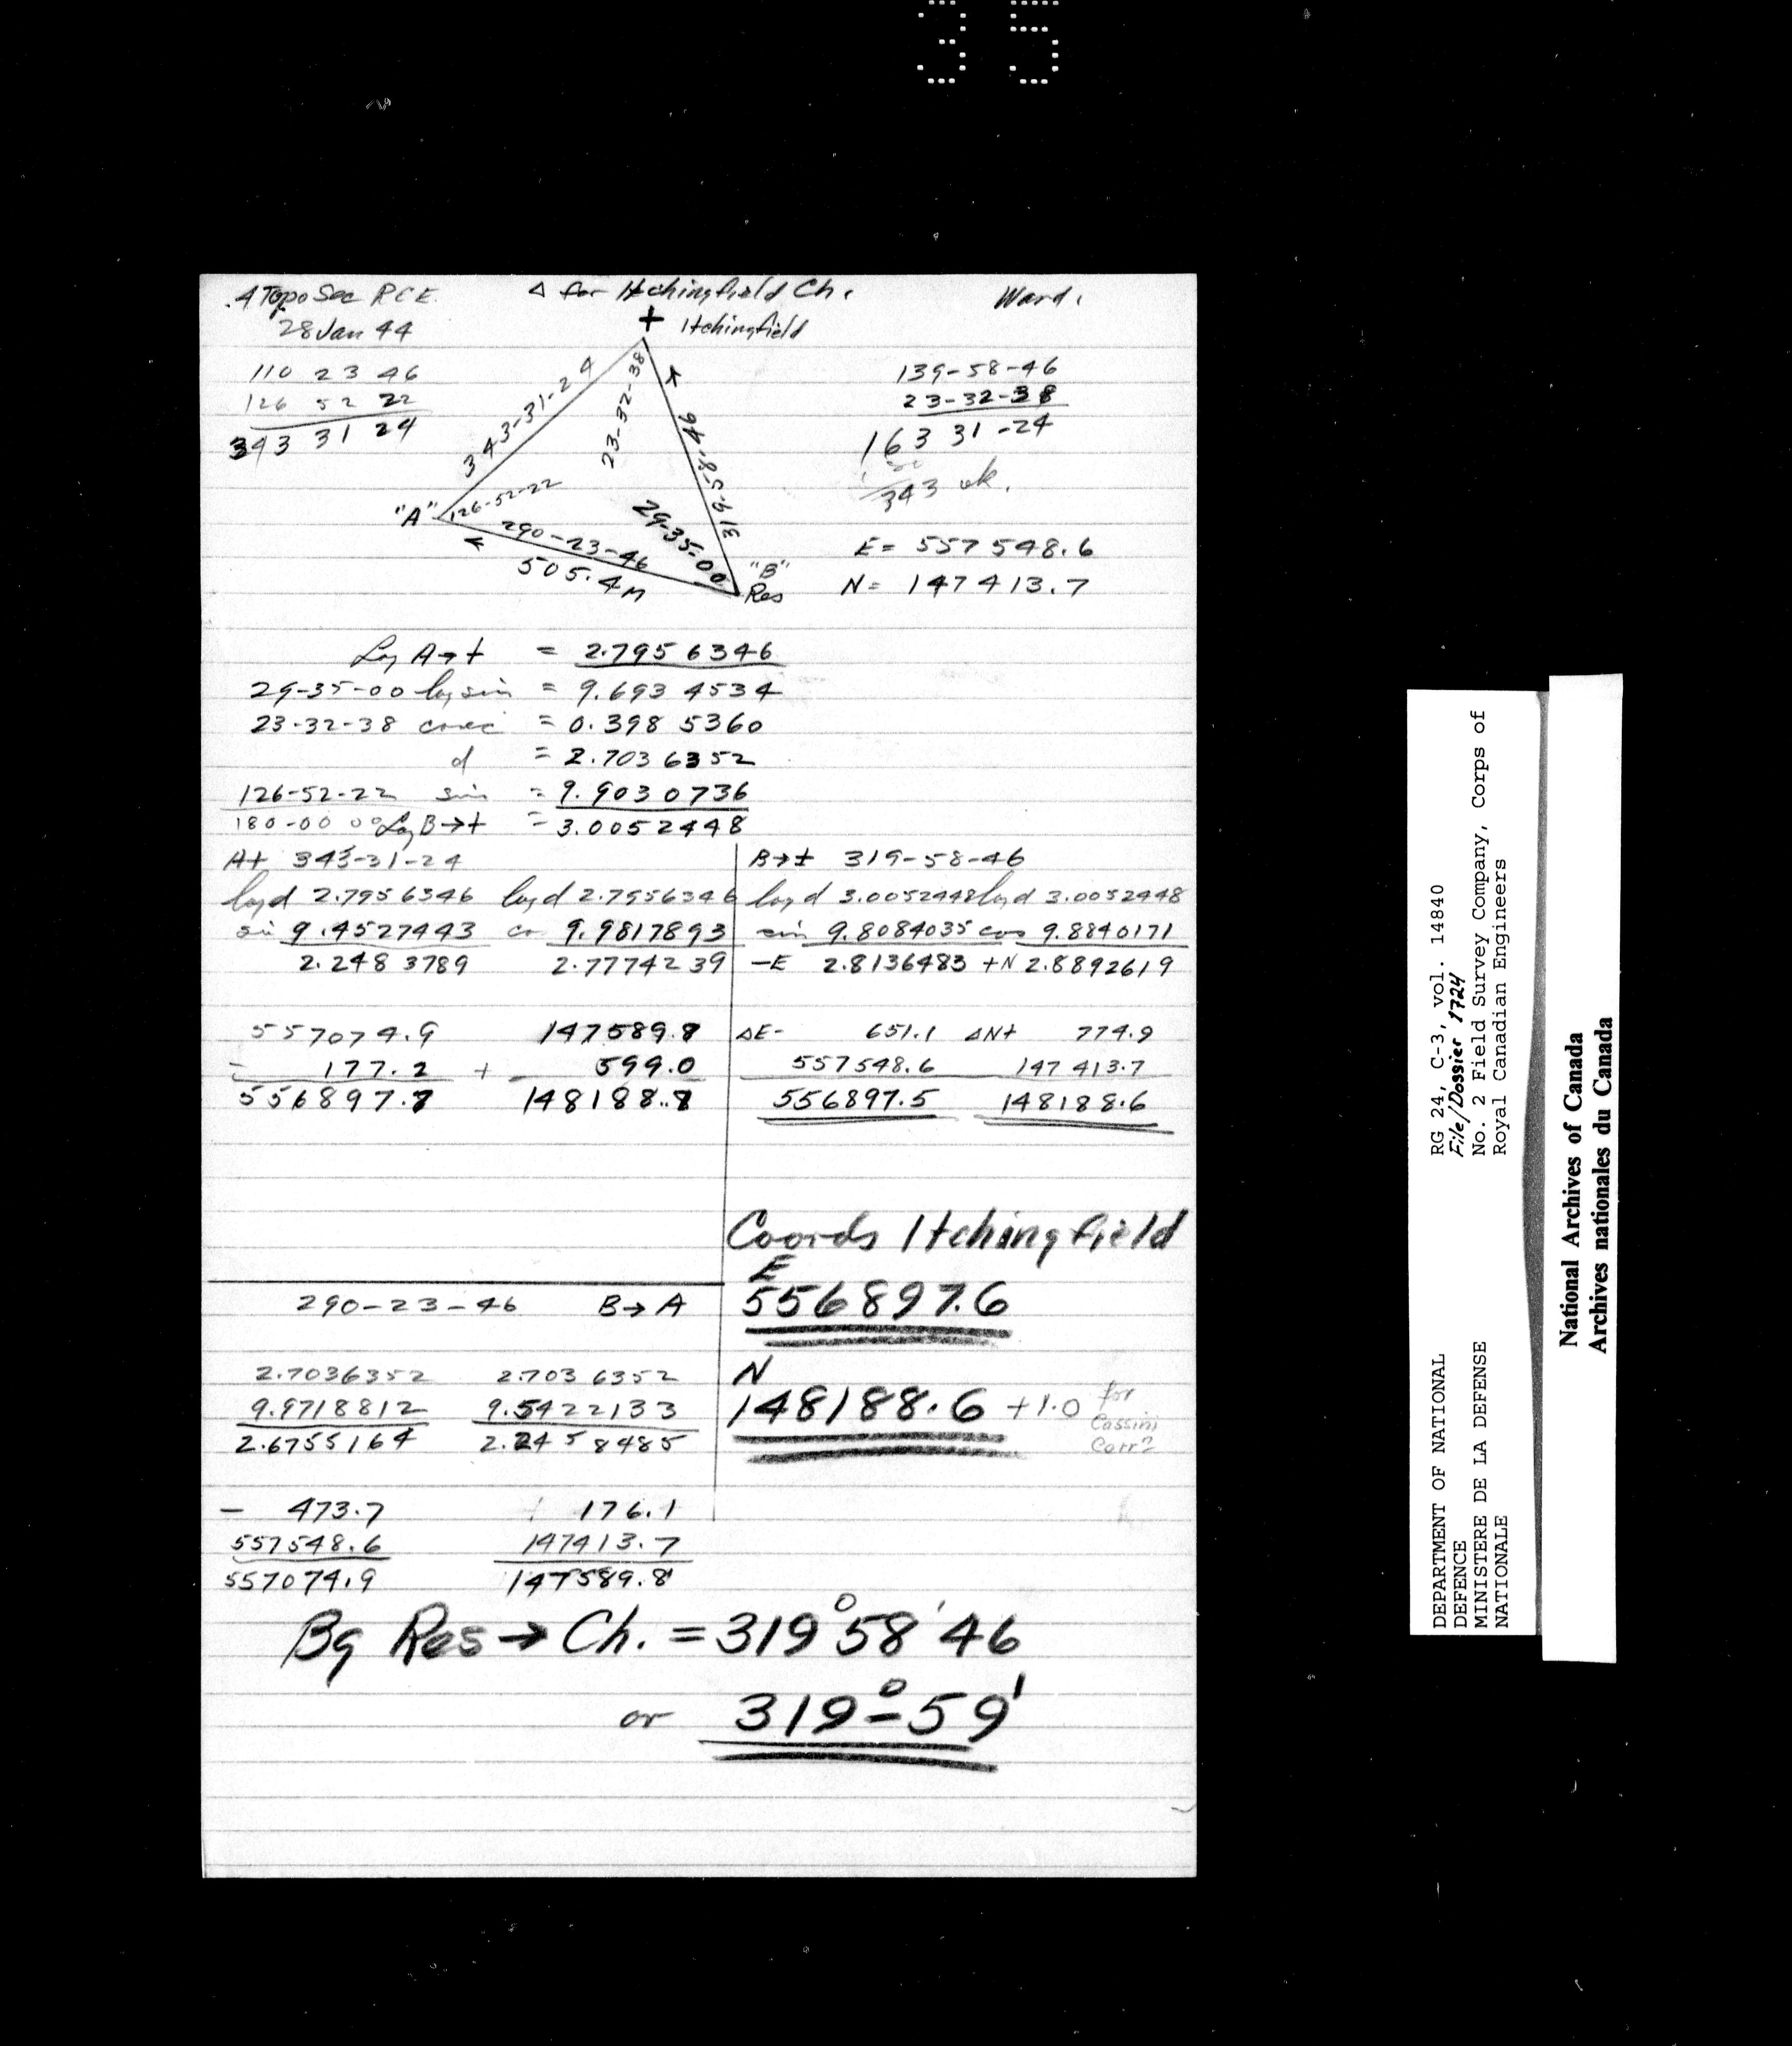 35
.4 Topo Sec RCE.
28 Jan 44
Δ for Itchingfield Ch.
Ward.
+ Itchingfield
110 23 46
126 52 22
343 31 24
343-31-24
23-32-38
319-58-46
"A"
126-52-22
290-23-46
505.4 M
29-35-00
"B"
Res
139-58-46
23-32-38
163 31-24
343 ok.
E = 557548.6
N = 147413.7
Log A→+ = 2.7956346
29-35-00 log sin = 9.693 4534
23-32-38 cosec = 0.398 5360
d = 2.7036352
126-52-22 sin = 9.9030736
180-00 00 Log B→+ = 3.0052448
A+ 343-31-24
log d 2.7956346 log d 2.7956346
sin 9.4527443 co 9.9817893
2.248 3789 2.7774239
557074.9 147589.8
- 177.2 + 599.0
556897.7 148188.8
B→+ 319-58-46
log d 3.0052448 log d 3.0052448
sin 9.8084035 cos 9.8840171
-E 2.8136483 +N 2.8892619
ΔE- 651.1 ΔN+ 774.9
557548.6 147413.7
556897.5 148188.6
Coords Itchingfield
E
556897.6
N
148188.6 +1.0 for
Cassini
Corr?
290-23-46 B→A
2.7036352 2.7036352
9.9718812 9.5422133
2.6755164 2.2458485
- 473.7 + 176.1
557548.6 147413.7
557074.9 147589.8
Bg Res → Ch. = 319°58'46
or 319°-59'
DEPARTMENT OF NATIONAL
DEFENCE
MINISTERE DE LA DEFENSE
NATIONALE
RG 24, C-3, vol. 14840
File/Dossier 1724
No. 2 Field Survey Company, Corps of
Royal Canadian Engineers
National Archives of Canada
Archives nationales du Canada